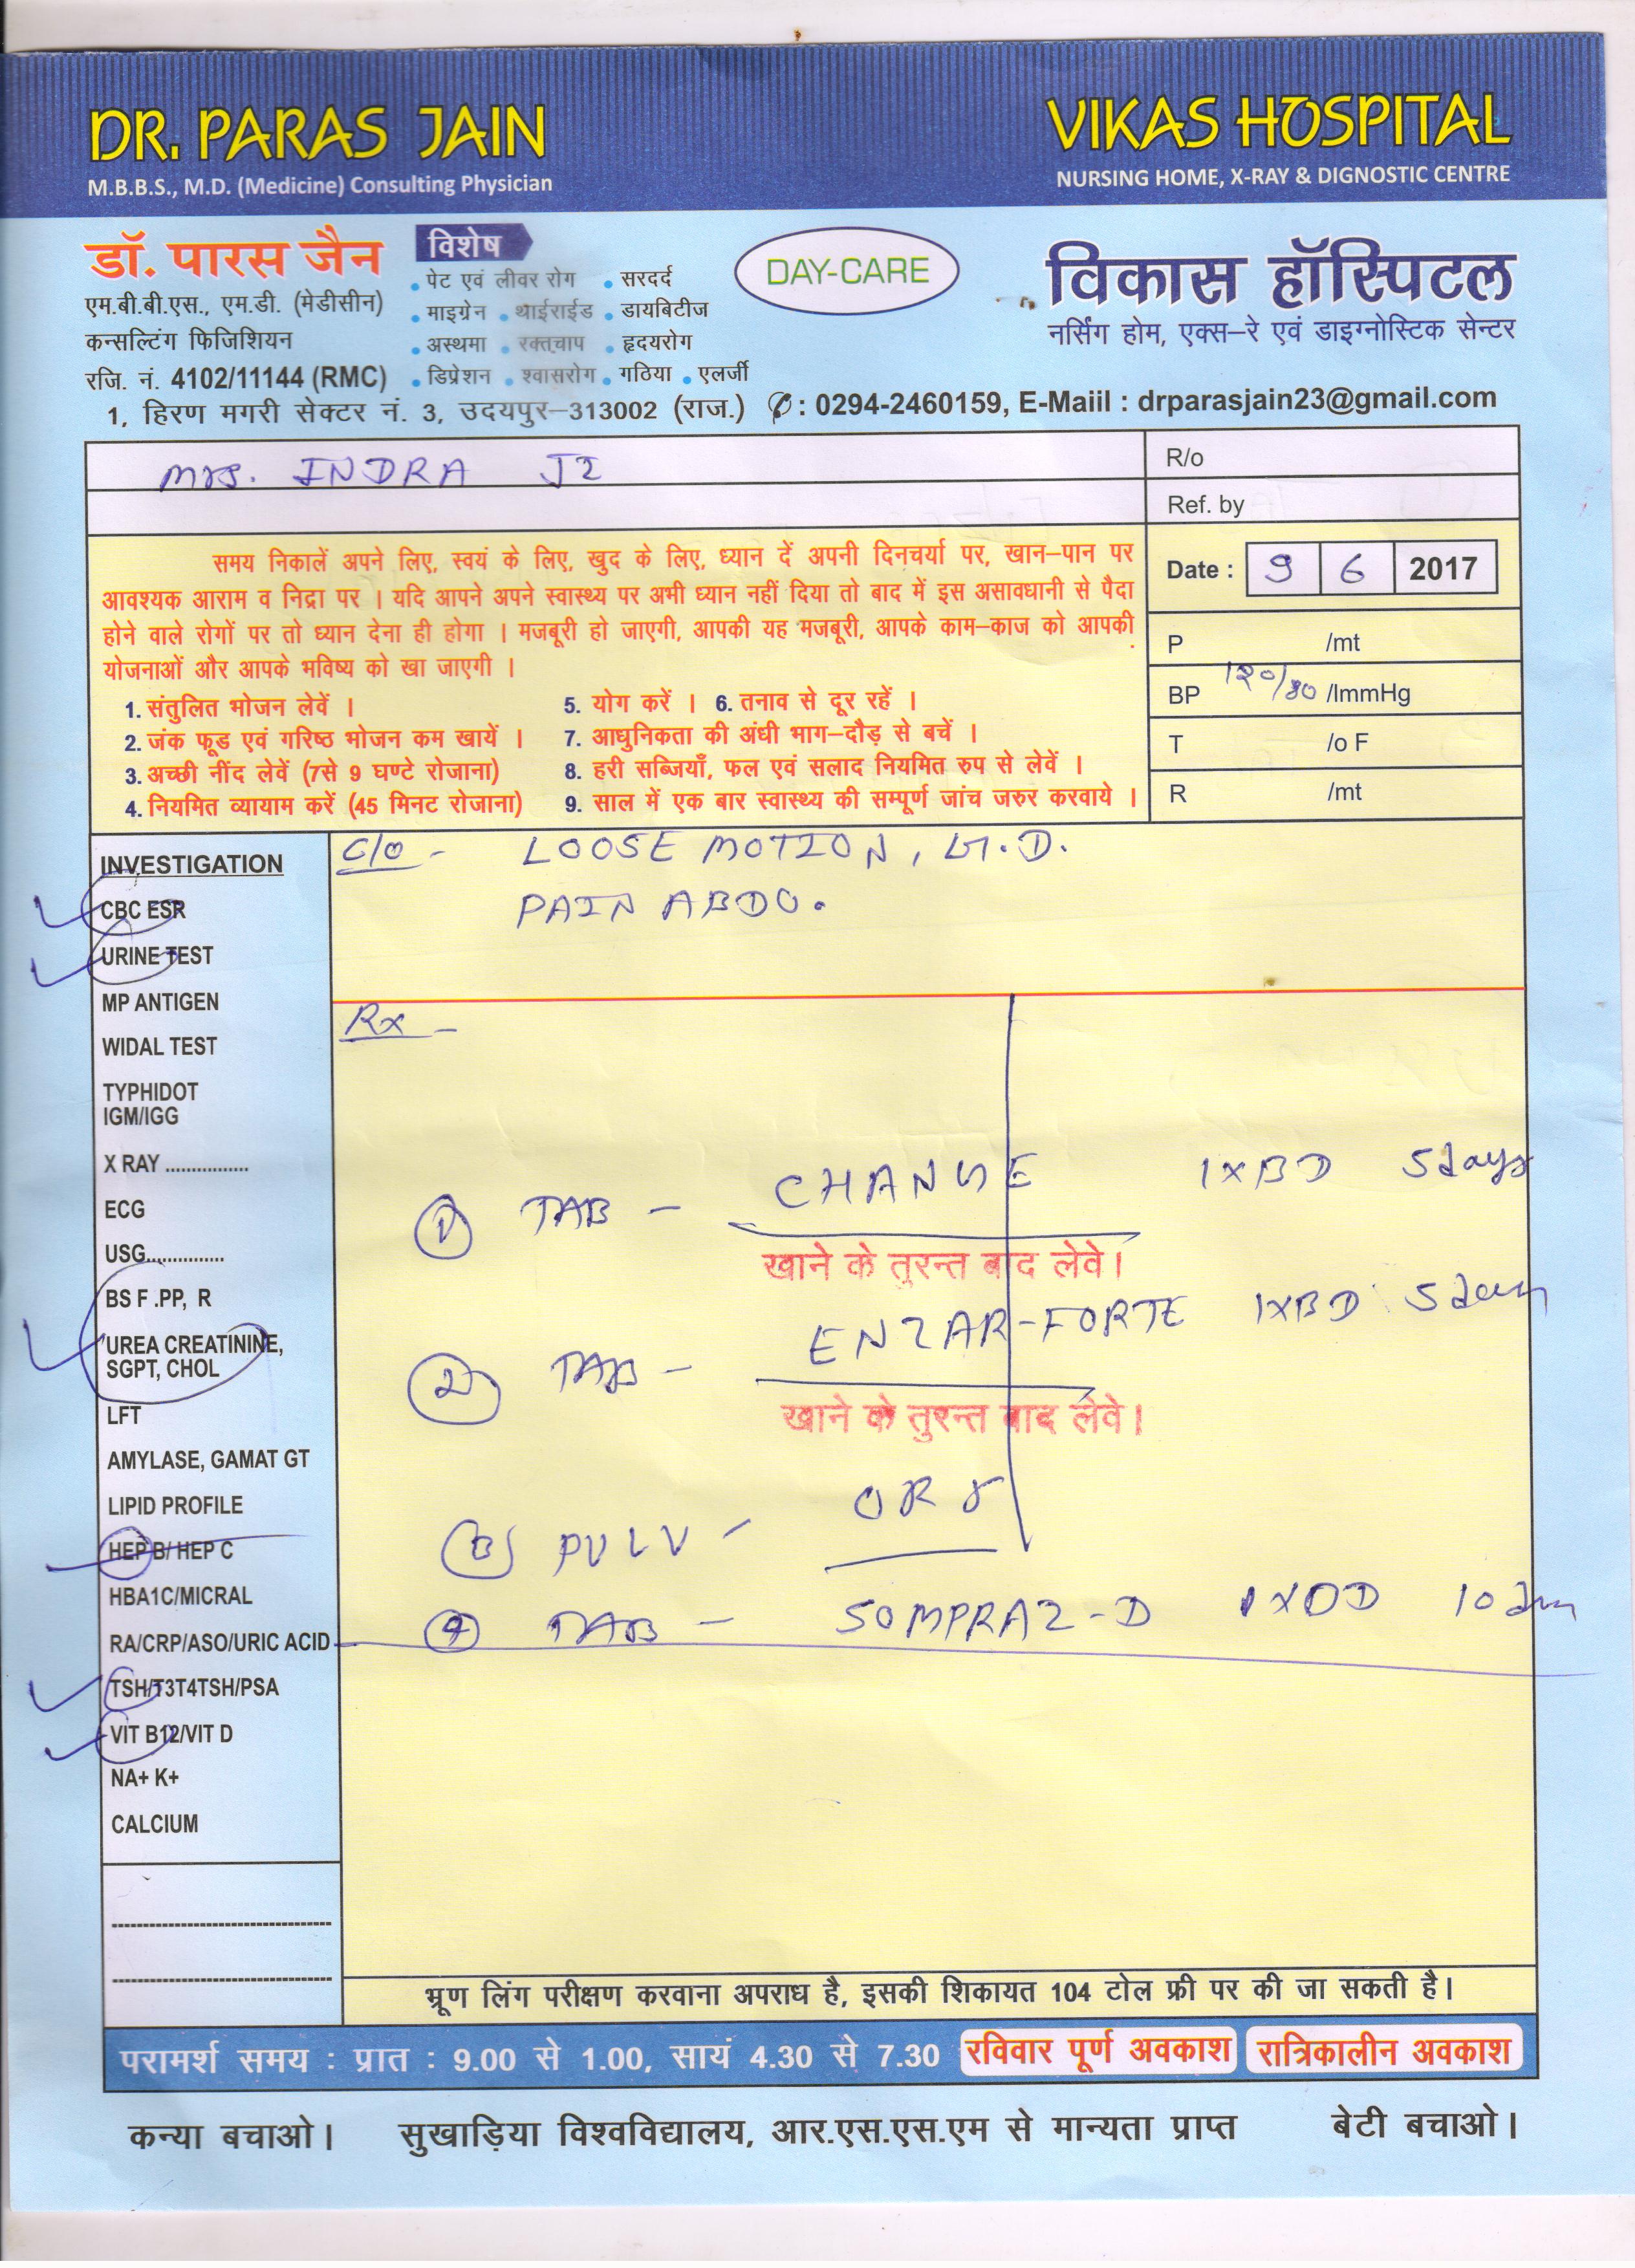 DR. PARAS JAIN
M.B.B.S., M.D. (Medicine) Consulting Physician
VIKAS HOSPITAL
NURSING HOME, X-RAY & DIGNOSTIC CENTRE
डॉ. पारस जैन
एम.बी.बी.एस., एम.डी. (मेडीसीन)
कन्सल्टिंग फिजिशियन
रजि. नं. 4102/11144 (RMC)
विशेष
• पेट एवं लीवर रोग • सरदर्द
• माइग्रेन • थाईराईड • डायबिटीज
• अस्थमा • रक्तचाप • हृदयरोग
• डिप्रेशन • श्वासरोग • गठिया • एलर्जी
DAY-CARE
विकास हॉस्पिटल
नर्सिंग होम, एक्स-रे एवं डाइग्नोस्टिक सेन्टर
1, हिरण मगरी सेक्टर नं. 3, उदयपुर-313002 (राज.) ✆: 0294-2460159, E-Maiil : drparasjain23@gmail.com
Mrs. INDRA
R/o
Ref. by
Date : 9 6 2017
P /mt
BP 120/80 /lmmHg
T /o F
R /mt
समय निकालें अपने लिए, स्वयं के लिए, खुद के लिए, ध्यान दें अपनी दिनचर्या पर, खान-पान पर
आवश्यक आराम व निद्रा पर । यदि आपने अपने स्वास्थ्य पर अभी ध्यान नहीं दिया तो बाद में इस असावधानी से पैदा
होने वाले रोगों पर तो ध्यान देना ही होगा । मजबूरी हो जाएगी, आपकी यह मजबूरी, आपके काम-काज को आपकी
योजनाओं और आपके भविष्य को खा जाएगी ।
1. संतुलित भोजन लेवें ।
2. जंक फूड एवं गरिष्ठ भोजन कम खायें ।
3. अच्छी नींद लेवें (7से 9 घण्टे रोजाना)
4. नियमित व्यायाम करें (45 मिनट रोजाना)
5. योग करें । 6. तनाव से दूर रहें ।
7. आधुनिकता की अंधी भाग-दौड़ से बचें ।
8. हरी सब्जियाँ, फल एवं सलाद नियमित रुप से लेवें ।
9. साल में एक बार स्वास्थ्य की सम्पूर्ण जांच जरुर करवाये ।
INVESTIGATION
CBC ESR
URINE TEST
MP ANTIGEN
WIDAL TEST
TYPHIDOT
IGM/IGG
X RAY ................
ECG
USG...............
BS F .PP, R
UREA CREATININE,
SGPT, CHOL
LFT
AMYLASE, GAMAT GT
LIPID PROFILE
HEP B/ HEP C
HBA1C/MICRAL
RA/CRP/ASO/URIC ACID
TSH/T3T4TSH/PSA
VIT B12/VIT D
NA+ K+
CALCIUM
C/o - LOOSE MOTION, G.D.
PAIN ABDO.
Rx -
① TAB - CHANGE 1XBD 5 days
खाने के तुरन्त बाद लेवे।
② TAB - ENZAR-FORTE 1XBD 5 days
खाने के तुरन्त बाद लेवे।
③ PULV - ORS
④ TAB - SOMPRAZ-D 1XOD 10 days
भ्रूण लिंग परीक्षण करवाना अपराध है, इसकी शिकायत 104 टोल फ्री पर की जा सकती है।
परामर्श समय : प्रात : 9.00 से 1.00, सायं 4.30 से 7.30 रविवार पूर्ण अवकाश रात्रिकालीन अवकाश
कन्या बचाओ। सुखाड़िया विश्वविद्यालय, आर.एस.एस.एम से मान्यता प्राप्त बेटी बचाओ।